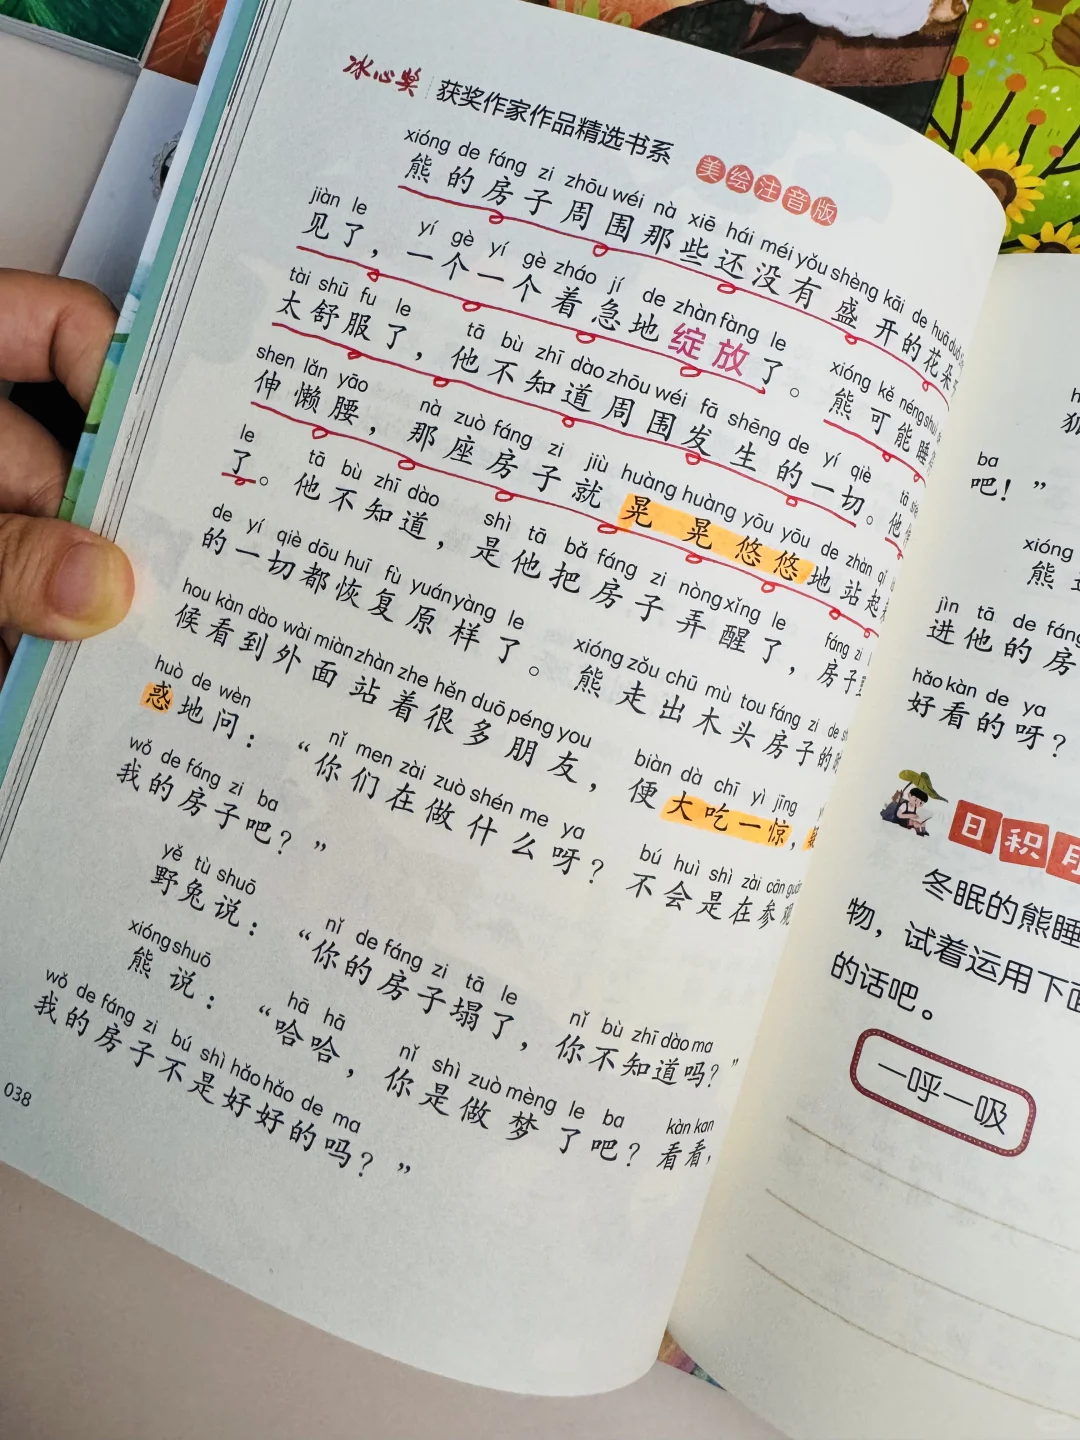 冰心奖 获奖作家作品精选书系 美绘注音版
xióng de fáng zi zhōu wéi nà xiē hái méi yǒu shèng kāi de huā duǒ
熊的房子周围那些还没有盛开的花朵
jiàn le yí gè yí gè zháo jí de zhàn fàng le xióng kě néng shuì
见了，一个一个着急地绽放了。熊可能睡
tài shū fu le tā bù zhī dào zhōu wéi fā shēng de yí qiè tā
太舒服了，他不知道周围发生的一切。他
shen lǎn yāo nà zuò fáng zi jiù huàng huàng yōu yōu de zhàn qǐ
伸懒腰，那座房子就晃晃悠悠地站起
le tā bù zhī dào shì tā bǎ fáng zi nòng xǐng le fáng zi
了。他不知道，是他把房子弄醒了，房子里
de yí qiè dōu huī fù yuán yàng le xióng zǒu chū mù tou fáng zi de
的一切都恢复原样了。熊走出木头房子的时
hou kàn dào wài miàn zhàn zhe hěn duō péng you biàn dà chī yì jīng
候看到外面站着很多朋友，便大吃一惊，
huò de wèn nǐ men zài zuò shén me ya bú huì shì zài cān guān
惑地问：“你们在做什么呀？不会是在参观
wǒ de fáng zi ba
我的房子吧？”
yě tù shuō nǐ de fáng zi tā le nǐ bù zhī dào ma
野兔说：“你的房子塌了，你不知道吗？”
xióng shuō hā hā nǐ shì zuò mèng le ba kàn kan
熊说：“哈哈，你是做梦了吧？看看，
wǒ de fáng zi bú shì hǎo hǎo de ma
我的房子不是好好的吗？”
038
ba
吧！”
xióng
熊
jìn tā de fáng
进他的房
hǎo kàn de ya
好看的呀？
日积月
冬眠的熊睡
物，试着运用下面
的话吧。
一呼一吸